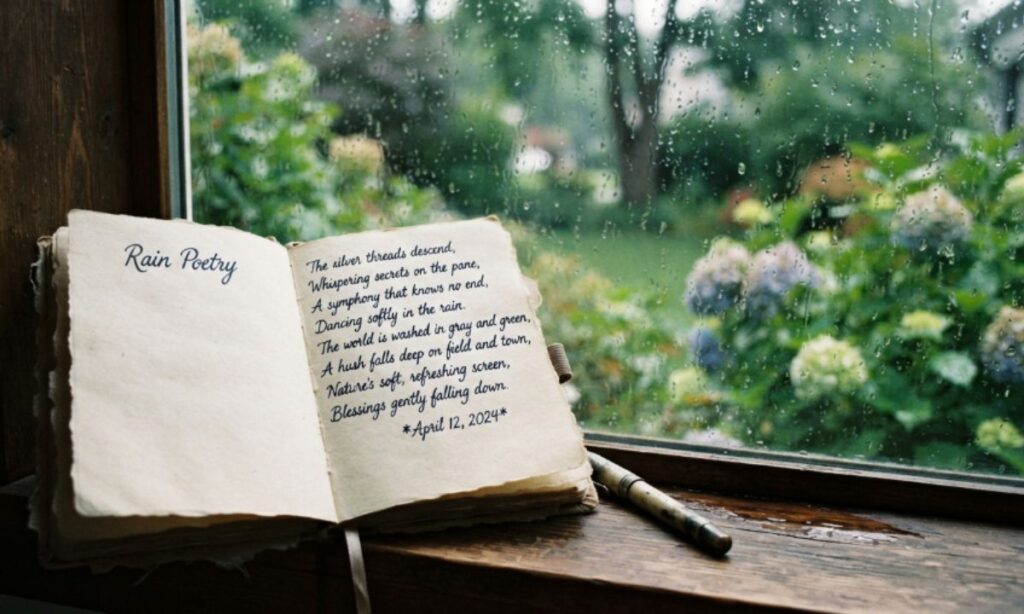 Rain Poetry
The silver threads descend,
Whispering secrets on the pane,
A symphony that knows no end,
Dancing softly in the rain.
The world is washed in gray and green,
A hush falls deep on field and town,
Nature's soft, refreshing screen,
Blessings gently falling down.
*April 12, 2024*